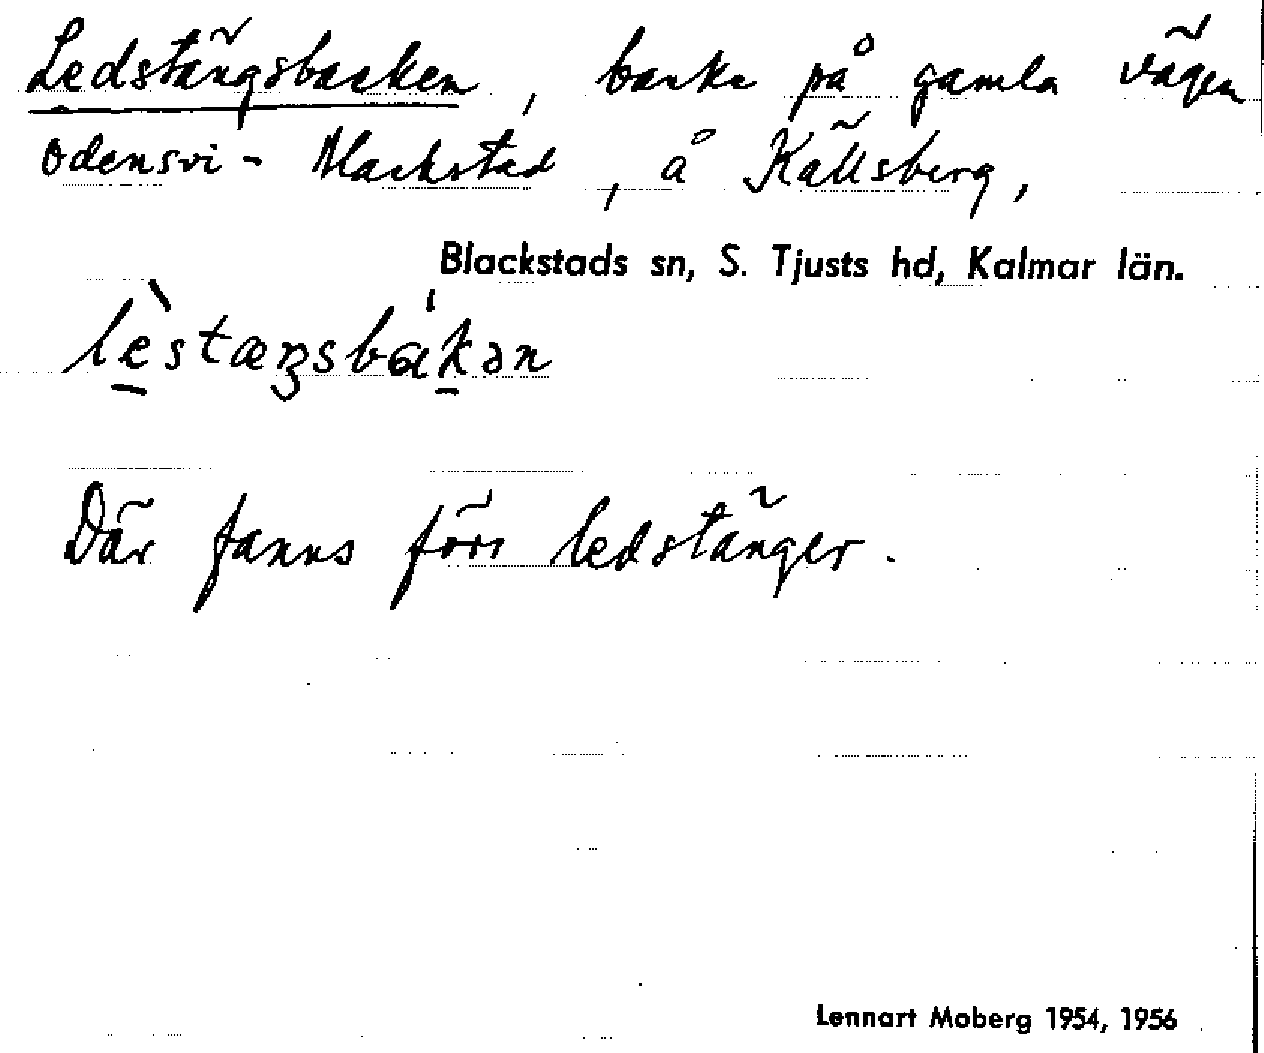 Ledstängsbacken, backe på gamla vägen
Odensvi - Blackstad, å Källsberg,
Blackstads sn, S. Tjusts hd, Kalmar län.
lèstæŋsbákən
Där fanns förr ledstänger.
Lennart Moberg 1954, 1956